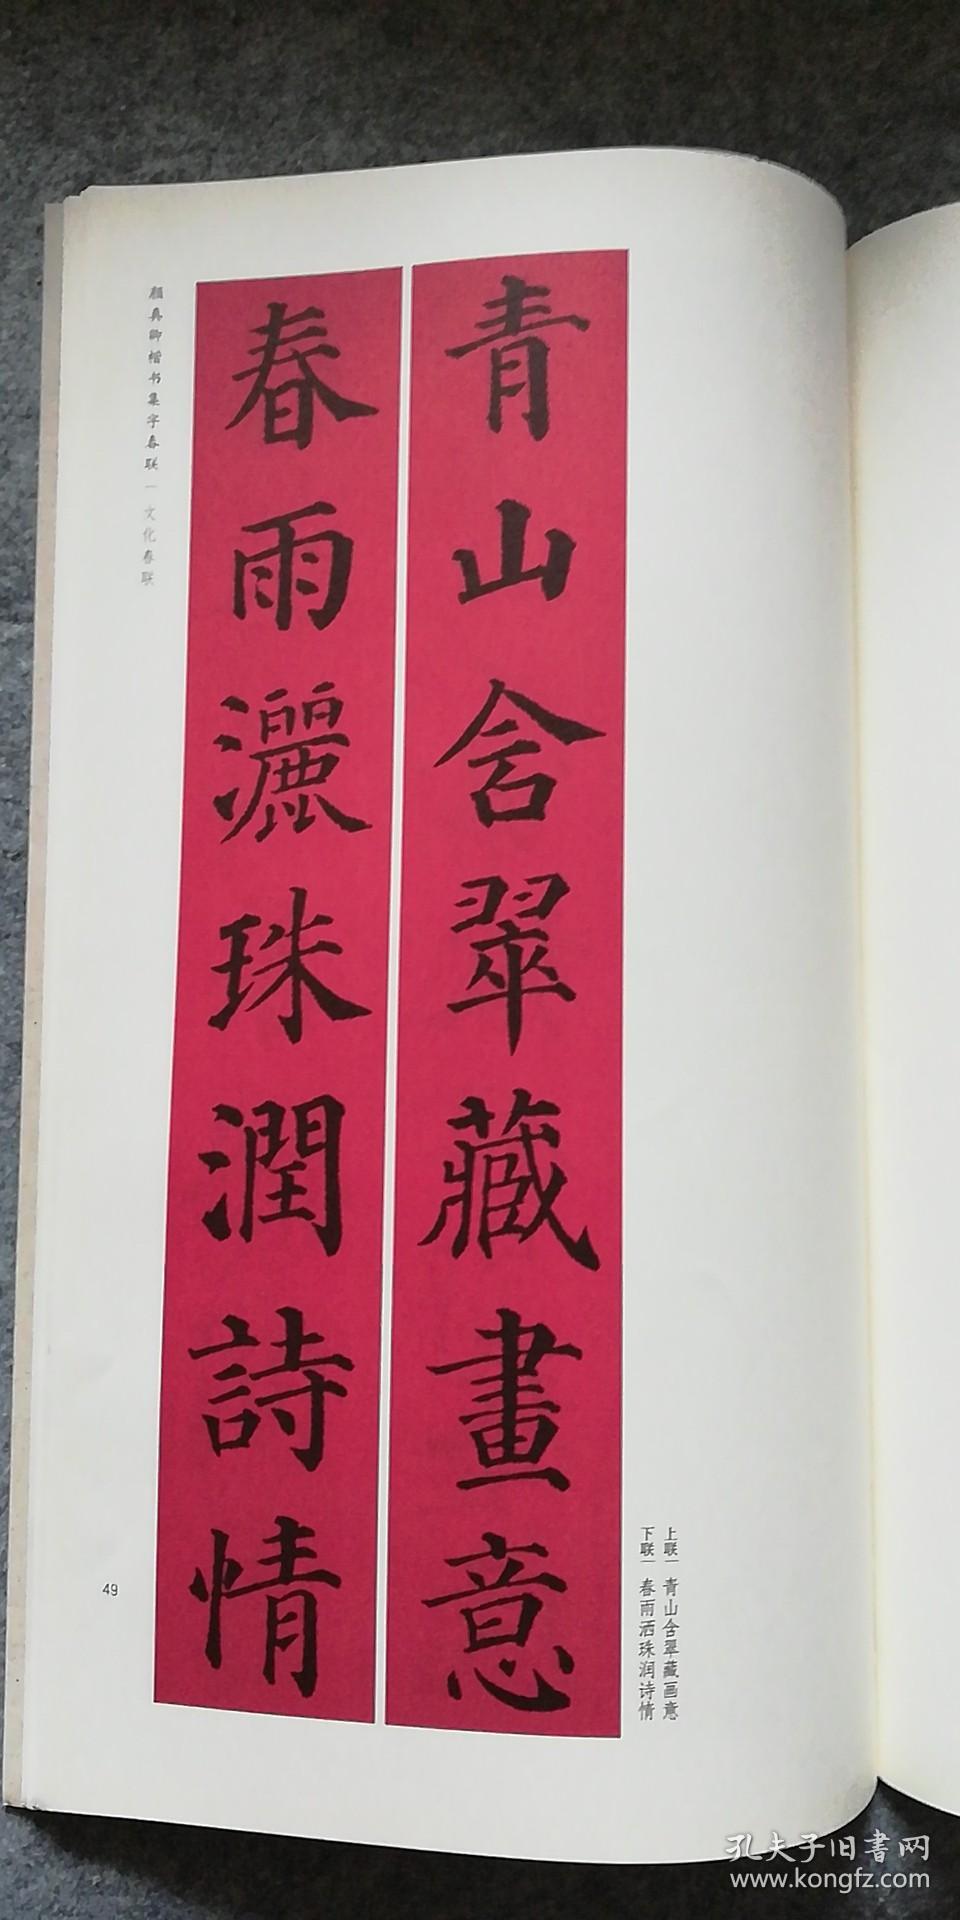 青山含翠藏畫意
春雨灑珠潤詩情
上联｜青山含翠藏画意
下联｜春雨洒珠润诗情
颜真卿楷书集字春联｜文化春联
49
孔夫子旧書网
www.kongfz.com